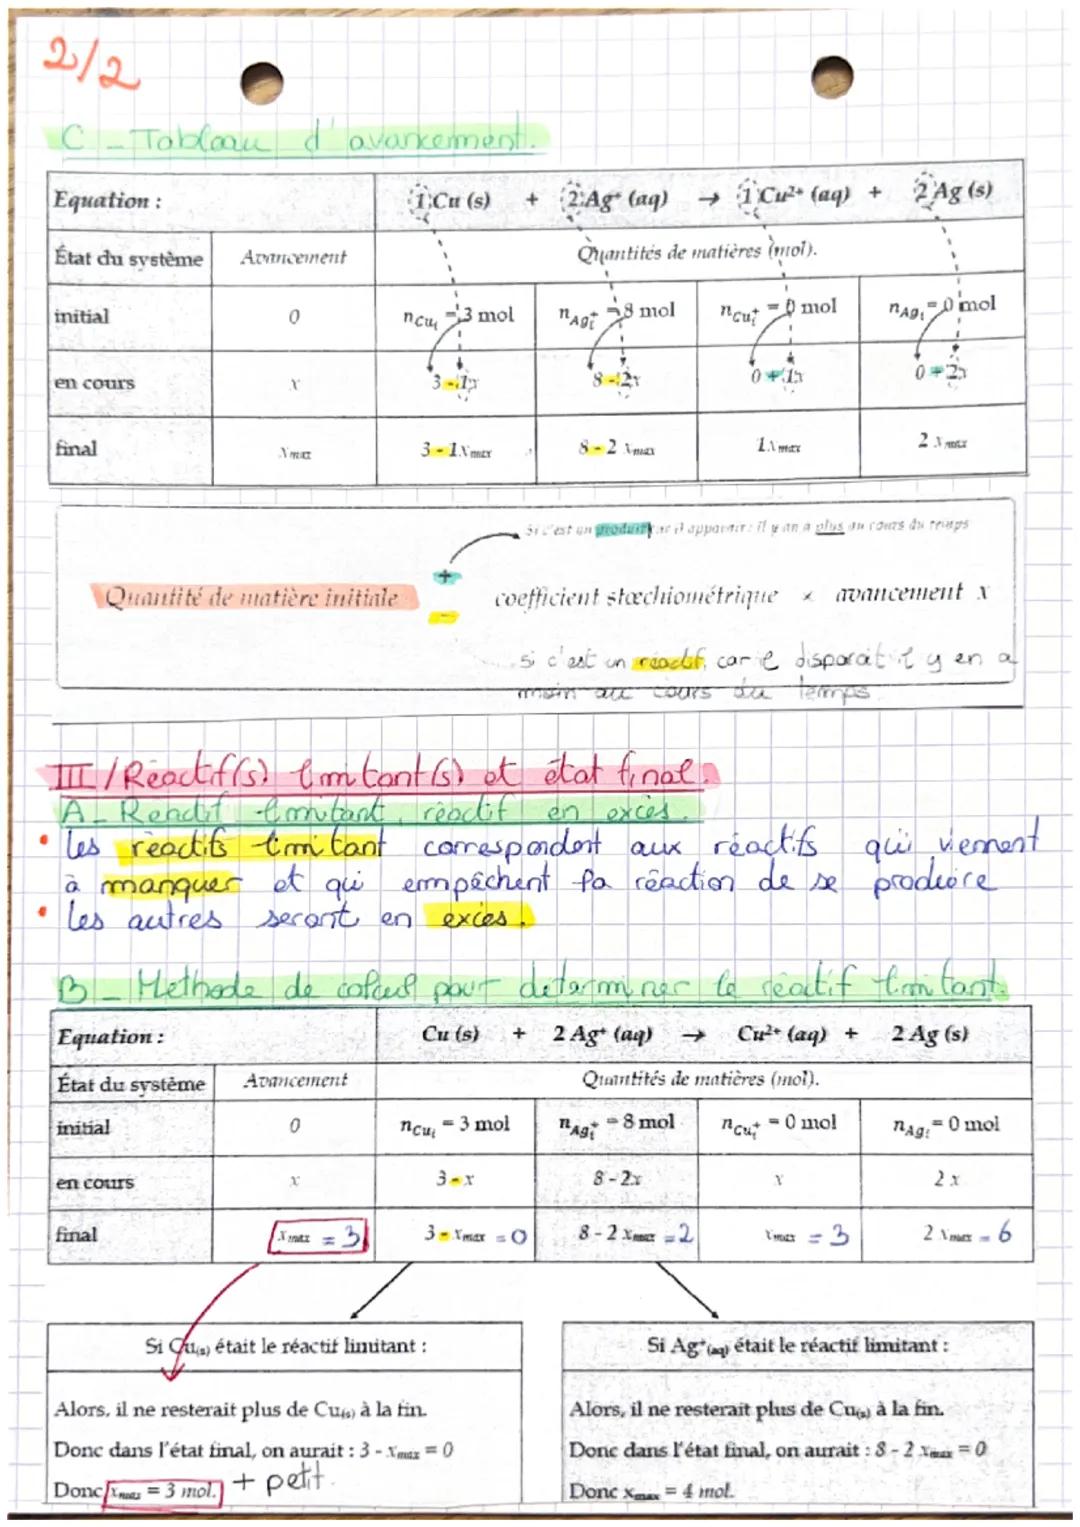 2/2
C - Tableau d'avancement.
Equation : 1 Cu (s) + 2 Ag⁺ (aq) → 1 Cu²⁺ (aq) + 2 Ag (s)
État du système Avancement Quantités de matières (mol).
initial 0 nCuᵢ = 3 mol nAg⁺ᵢ = 8 mol nCu⁺ᵢ = 0 mol nAgᵢ = 0 mol
en cours x 3 - 1x 8 - 2x 0 + 1x 0 + 2x
final xmax 3 - 1xmax 8 - 2 xmax 1xmax 2 xmax
Si c'est un produit car il apparait : il y en a plus au cours du temps
Quantité de matière initiale + - coefficient stœchiométrique × avancement x
si c'est un réactif, car il disparait il y en a
moin au cours du temps.
III / Réactif(s) limitant(s) et état final.
A - Réactif limitant, réactif en excès.
• Les réactifs limitant correspondent aux réactifs qui viennent
à manquer et qui empêchent la réaction de se produire
• Les autres seront en excès.
B - Méthode de calcul pour déterminer le réactif limitant.
Equation : Cu (s) + 2 Ag⁺ (aq) → Cu²⁺ (aq) + 2 Ag (s)
État du système Avancement Quantités de matières (mol).
initial 0 nCuᵢ = 3 mol nAg⁺ᵢ = 8 mol nCu⁺ᵢ = 0 mol nAgᵢ = 0 mol
en cours x 3 - x 8 - 2x x 2 x
final xmax = 3 3 - xmax = 0 8 - 2 xmax = 2 xmax = 3 2 xmax = 6
Si Cu(s) était le réactif limitant :
Alors, il ne resterait plus de Cu(s) à la fin.
Donc dans l'état final, on aurait : 3 - xmax = 0
Donc xmax = 3 mol. + petit.
Si Ag⁺(aq) était le réactif limitant :
Alors, il ne resterait plus de Cu(s) à la fin.
Donc dans l'état final, on aurait : 8 - 2 xmax = 0
Donc xmax = 4 mol.